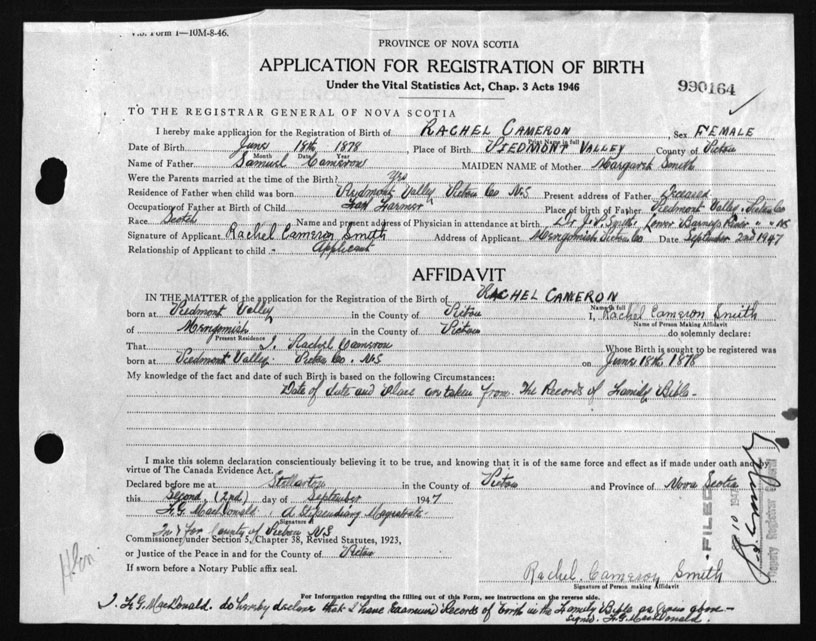 V.S. Form 1—10M-8-46.
PROVINCE OF NOVA SCOTIA
APPLICATION FOR REGISTRATION OF BIRTH
990164
Under the Vital Statistics Act, Chap. 3 Acts 1946
TO THE REGISTRAR GENERAL OF NOVA SCOTIA
I hereby make application for the Registration of Birth of RACHEL CAMERON, Sex FEMALE
Name in full
Date of Birth June 18th 1878, Place of Birth PIEDMONT VALLEY County of Pictou
Month Date Year
Name of Father Samuel Cameron MAIDEN NAME of Mother Margaret Smith
Were the Parents married at the time of Birth? Yes
Residence of Father when child was born Piedmont Valley Pictou Co NS Present address of Father Deceased
Occupation of Father at Birth of Child Farmer Place of birth of Father Piedmont Valley. Pictou Co
Race Scotch Name and present address of Physician in attendance at birth Dr Lower Barneys River " " NS
Signature of Applicant Rachel Cameron Smith Address of Applicant Merigomish Pictou Co. Date September 2nd 1947
Relationship of Applicant to child - Applicant
AFFIDAVIT
IN THE MATTER of the application for the Registration of the Birth of RACHEL CAMERON
Name in full
born at Piedmont Valley in the County of Pictou I, Rachel Cameron Smith
Name of Person Making Affidavit
of Merigomish in the County of Pictou do solemnly declare:
Present Residence
That I. Rachel Cameron Whose Birth is sought to be registered was
born at Piedmont Valley. Pictou Co. NS on June 18th 1878
My knowledge of the fact and date of such Birth is based on the following Circumstances:
Date of date and Place are taken from The Records of Family Bible-
I make this solemn declaration conscientiously believing it to be true, and knowing that it is of the same force and effect as if made under oath and by
virtue of The Canada Evidence Act.
Declared before me at Stellarton in the County of Pictou and Province of Nova Scotia
this Second, (2nd) day of September 1947
F.G. MacDonald. A Stipendiary Magistrate
Signature of
In & For County of Pictou NS
Commissioner under Section 5, Chapter 38, Revised Statutes, 1923,
or Justice of the Peace in and for the County of Pictou
If sworn before a Notary Public affix seal.
Rachel Cameron Smith
Signature of Person making Affidavit
For Information regarding the filling out of this Form, see instructions on the reverse side.
I. F.G. MacDonald. do hereby declare that I have Examined Records of birth in the Family Bible as given above-
signed. F.G. MacDonald.
FILED
10 1947
Deputy Registrar General